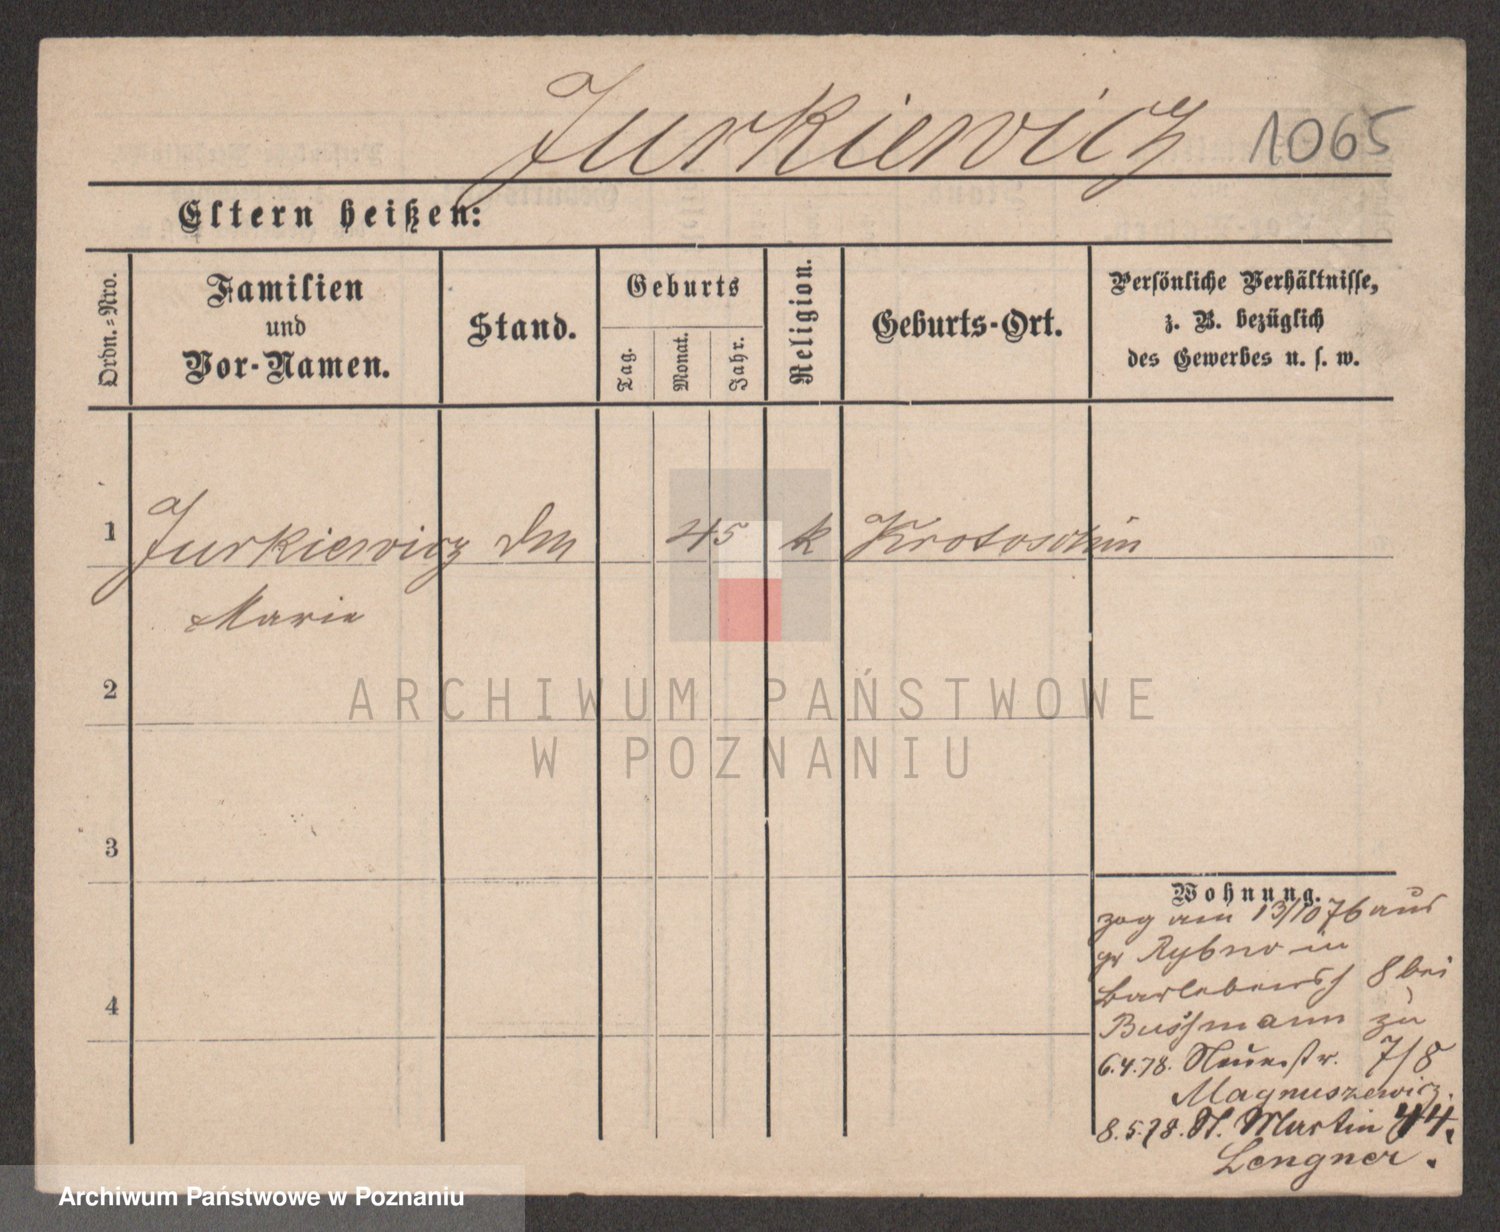 Jurkiewicz 1065
Eltern heißen:
Ordn.=Nro.
Familien
und
Vor-Namen.
Stand.
Geburts
Tag.
Monat.
Jahr.
Religion.
Geburts-Ort.
Persönliche Verhältnisse,
z. B. bezüglich
des Gewerbes u. s. w.
1 Jurkiewicz 45 k Krotoschin
Marie
2
ARCHIWUM PAŃSTWOWE
W POZNANIU
3
Wohnung.
zog am 13/10 76 aus
gr Rybno in
8 bei
4
Bussmann zu
6.4.78. Neuestr. 7/8
Magnuszewicz.
8.5.78. St. Martin 44.
Lengner.
Archiwum Państwowe w Poznaniu